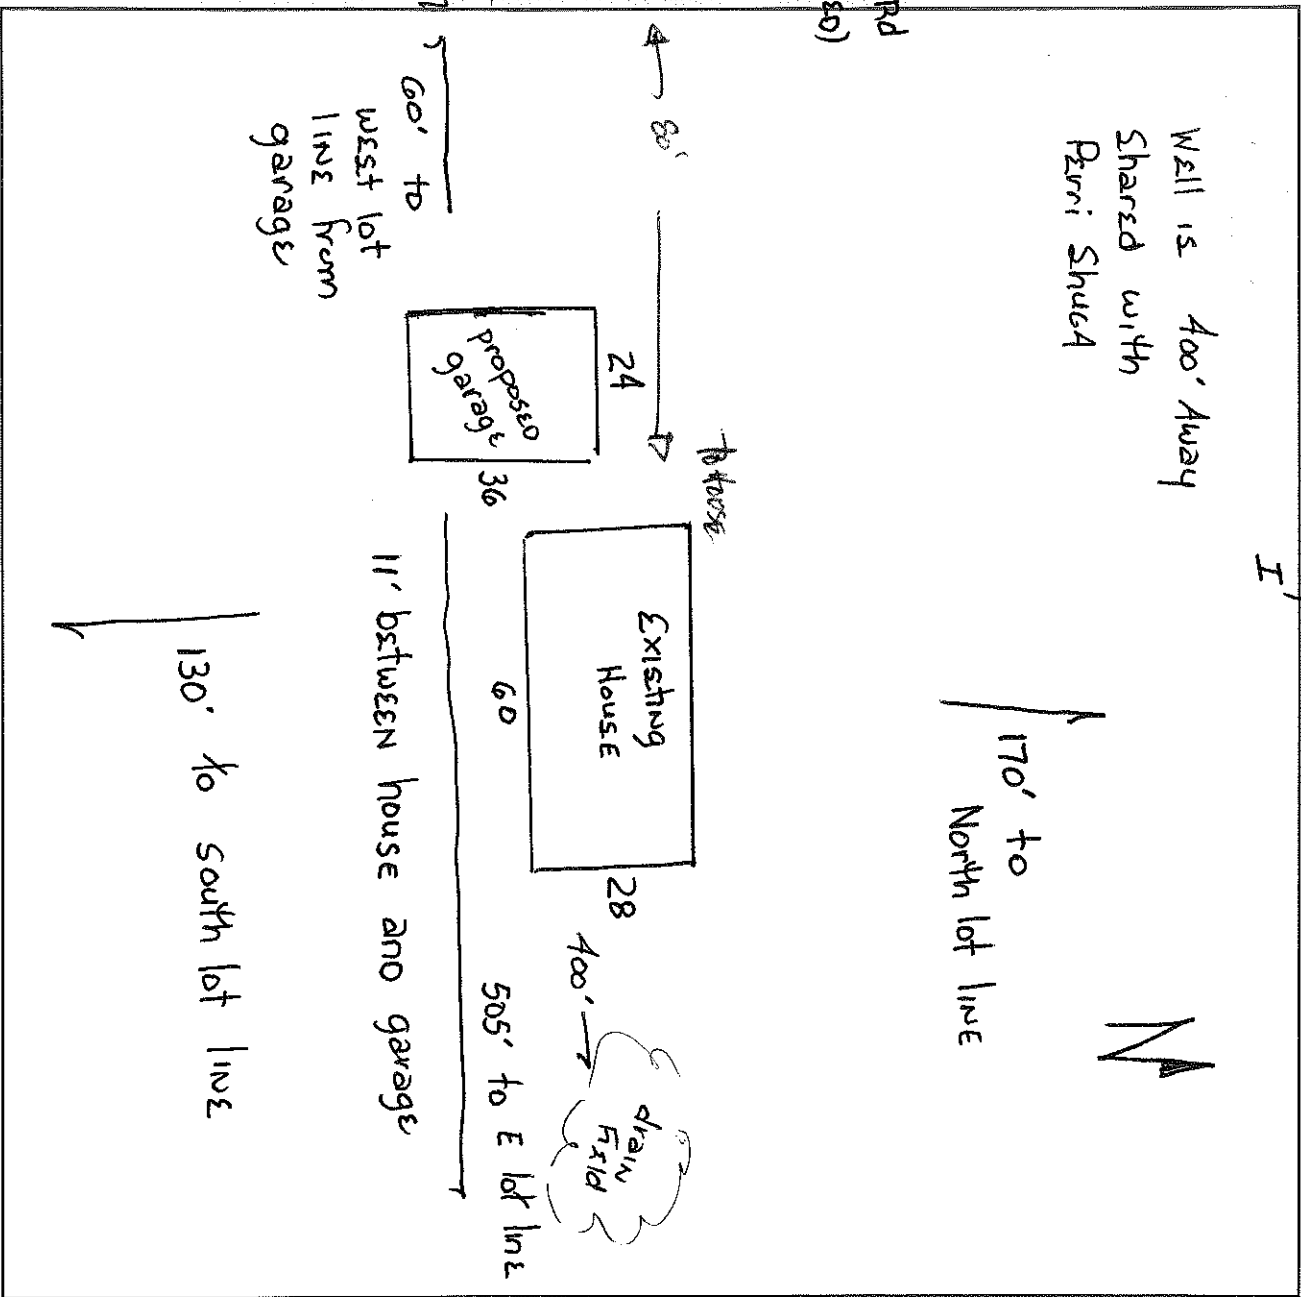 Rd
ED)
Well is 400' Away
Shared with
Perri Shuga
I'
80'
to House
170' to
North lot line
N
60' to
west lot
line from
garage
24
proposed
garage
36
Existing
House
60
28
400'
drain
Field
505' to E lot line
11' between house and garage
130' to south lot line